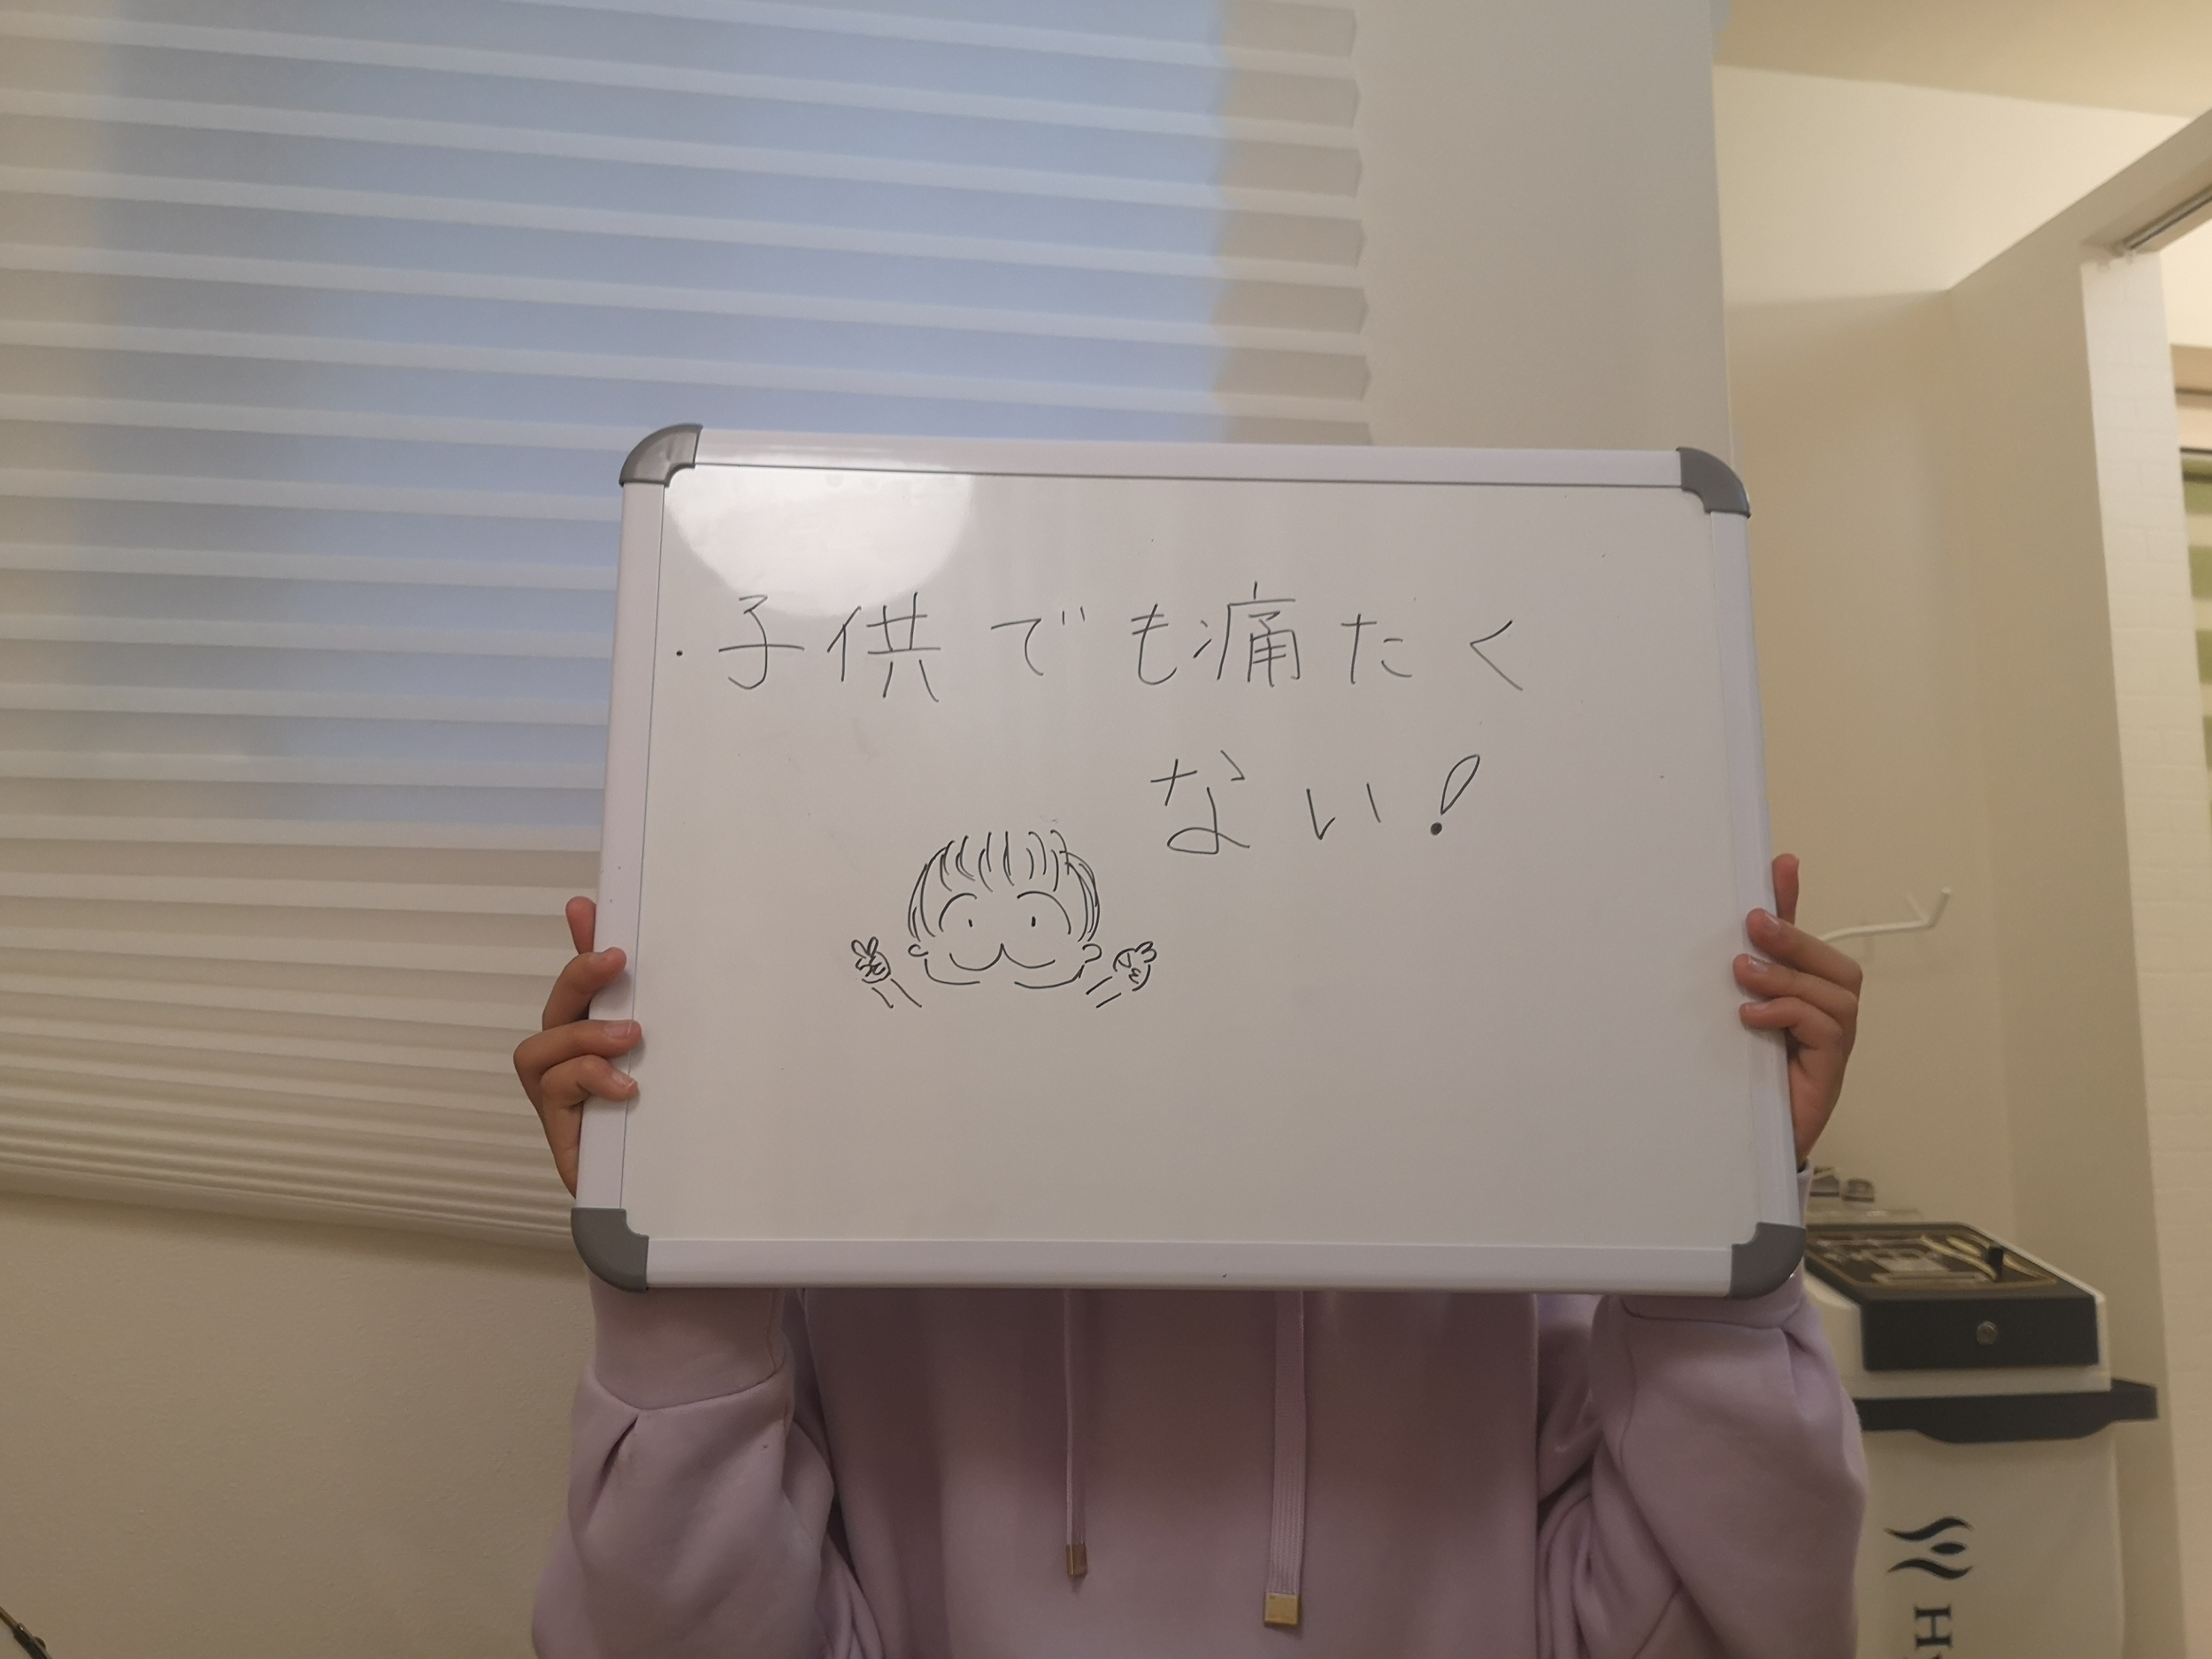 ・子供でも痛たく
ない!
H